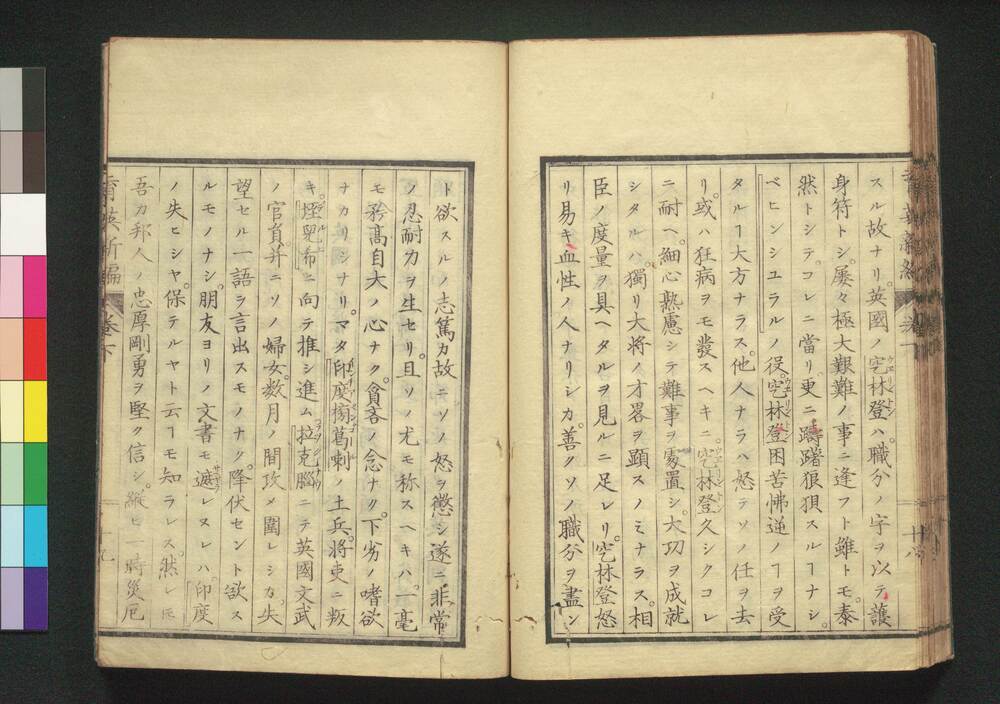 スル故ナリ。英國ノ窊林登ハ。職分ノ字ヲ以テ護
身符トシ。屡々極大艱難ノ事ニ逢フト雖トモ。泰
然トシテ。コレニ當リ。更ニ躊躇狼狽スルヿナシ。
ペニンシユラルノ役。窊林登困苦怫逆ノヿヲ受
タルヿ大方ナラス。他人ナラハ怒テソノ任ヲ去
リ。或ハ狂病ヲモ發スヘキニ。窊林登久シクコレ
ニ耐ヘ。細心熟慮シテ難事ヲ處置シ。大功ヲ成就
シタルハ。獨リ大将ノ才畧ヲ顕スノミナラス。相
臣ノ度量ヲ具ヘタルヲ見ルニ足レリ。窊林登怒
リ易キ血性ノ人ナリシカ。善クソノ職分ヲ盡ン
ト欲スルノ志篤カ故ニ。ソノ怒ヲ懲シ。遂ニ非常
ノ忍耐力ヲ生セリ。且ソノ尤モ称スヘキハ。一毫
モ矜高自大ノ心ナク。貪吝ノ念ナク。下劣ノ嗜欲
ナカリシナリ。マタ印度榜葛剌ノ土兵。将吏ニ叛
キ。堙兜希ニ向テ推シ進ム。拉克腦ニテ英國文武
ノ官員并ニソノ婦女。数月ノ間攻メ圍レシカ。失
望セル一語ヲ言出スモノナク。降伏セント欲ス
ルモノナシ。朋友ヨリノ文書モ遮レヌレハ。印度
ノ失ヒシヤ。保テルヤト云ヿモ知ラレス。然レ𪜈
吾カ邦人ノ忠厚剛勇ヲ堅ク信シ。縦ヒ一時災厄